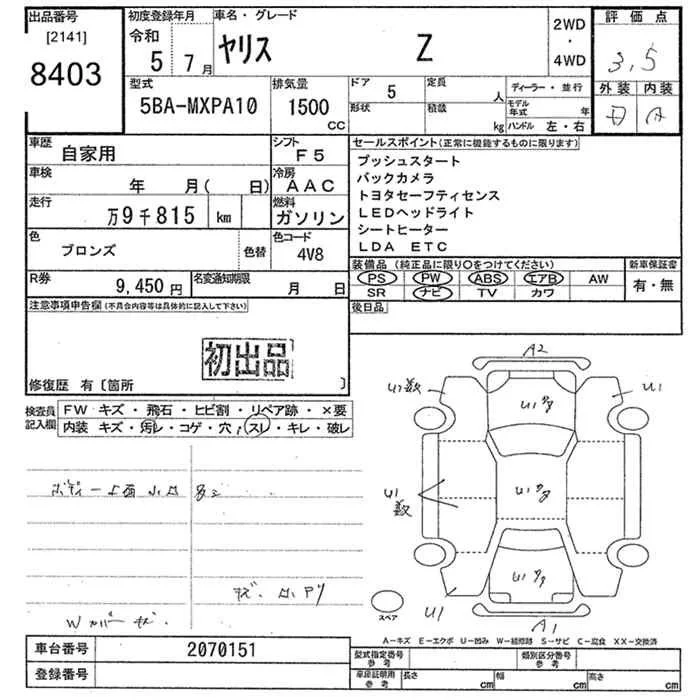 出品番号
[2141]
8403
初度登録年月
令和
5 7月
車名・グレード
ヤリス Z
2WD
・
4WD
評価点
3.5
外装 内装
A
型式
5BA-MXPA10
排気量
1500
CC
ドア
5
定員
人
ディーラー・並行
形状
積載
kg
モデル年式
年
ハンドル 左・右
車歴
自家用
シフト
F5
車検
年 月( 日)
冷房
AAC
走行
万9千815 km
燃料
ガソリン
色
ブロンズ
色替
色コード
4V8
R券
9,450円
名変通知期限
月 日
セールスポイント(正常に機能するものに限ります)
プッシュスタート
バックカメラ
トヨタセーフティセンス
LEDヘッドライト
シートヒーター
LDA ETC
装備品(純正品に限り○をつけてください)
新車保証書
PS PW ABS エアB AW
有・無
SR ナビ TV カワ
後日品
注意事項申告欄(不具合内容等は具体的に記入して下さい)
初出品
修復歴 有〔箇所 〕
検査員記入欄
FW キズ・飛石・ヒビ割・リペア跡・×要
内装 キズ・汚レ・コゲ・穴・スレ・キレ・破レ
ボディー上面小凹多シ
Wカバーキズ
A2
U1数
U1
U1多
U1多
U1数
U1多
U1
A1
スペア
A-キズ E-エクボ U-凹み W-補修跡 S-サビ C-腐食 XX-交換済
車台番号
2070151
登録番号
型式指定番号
参考
類別区分番号
参考
車庫証明用
参考
長さ
cm
幅
cm
高さ
cm